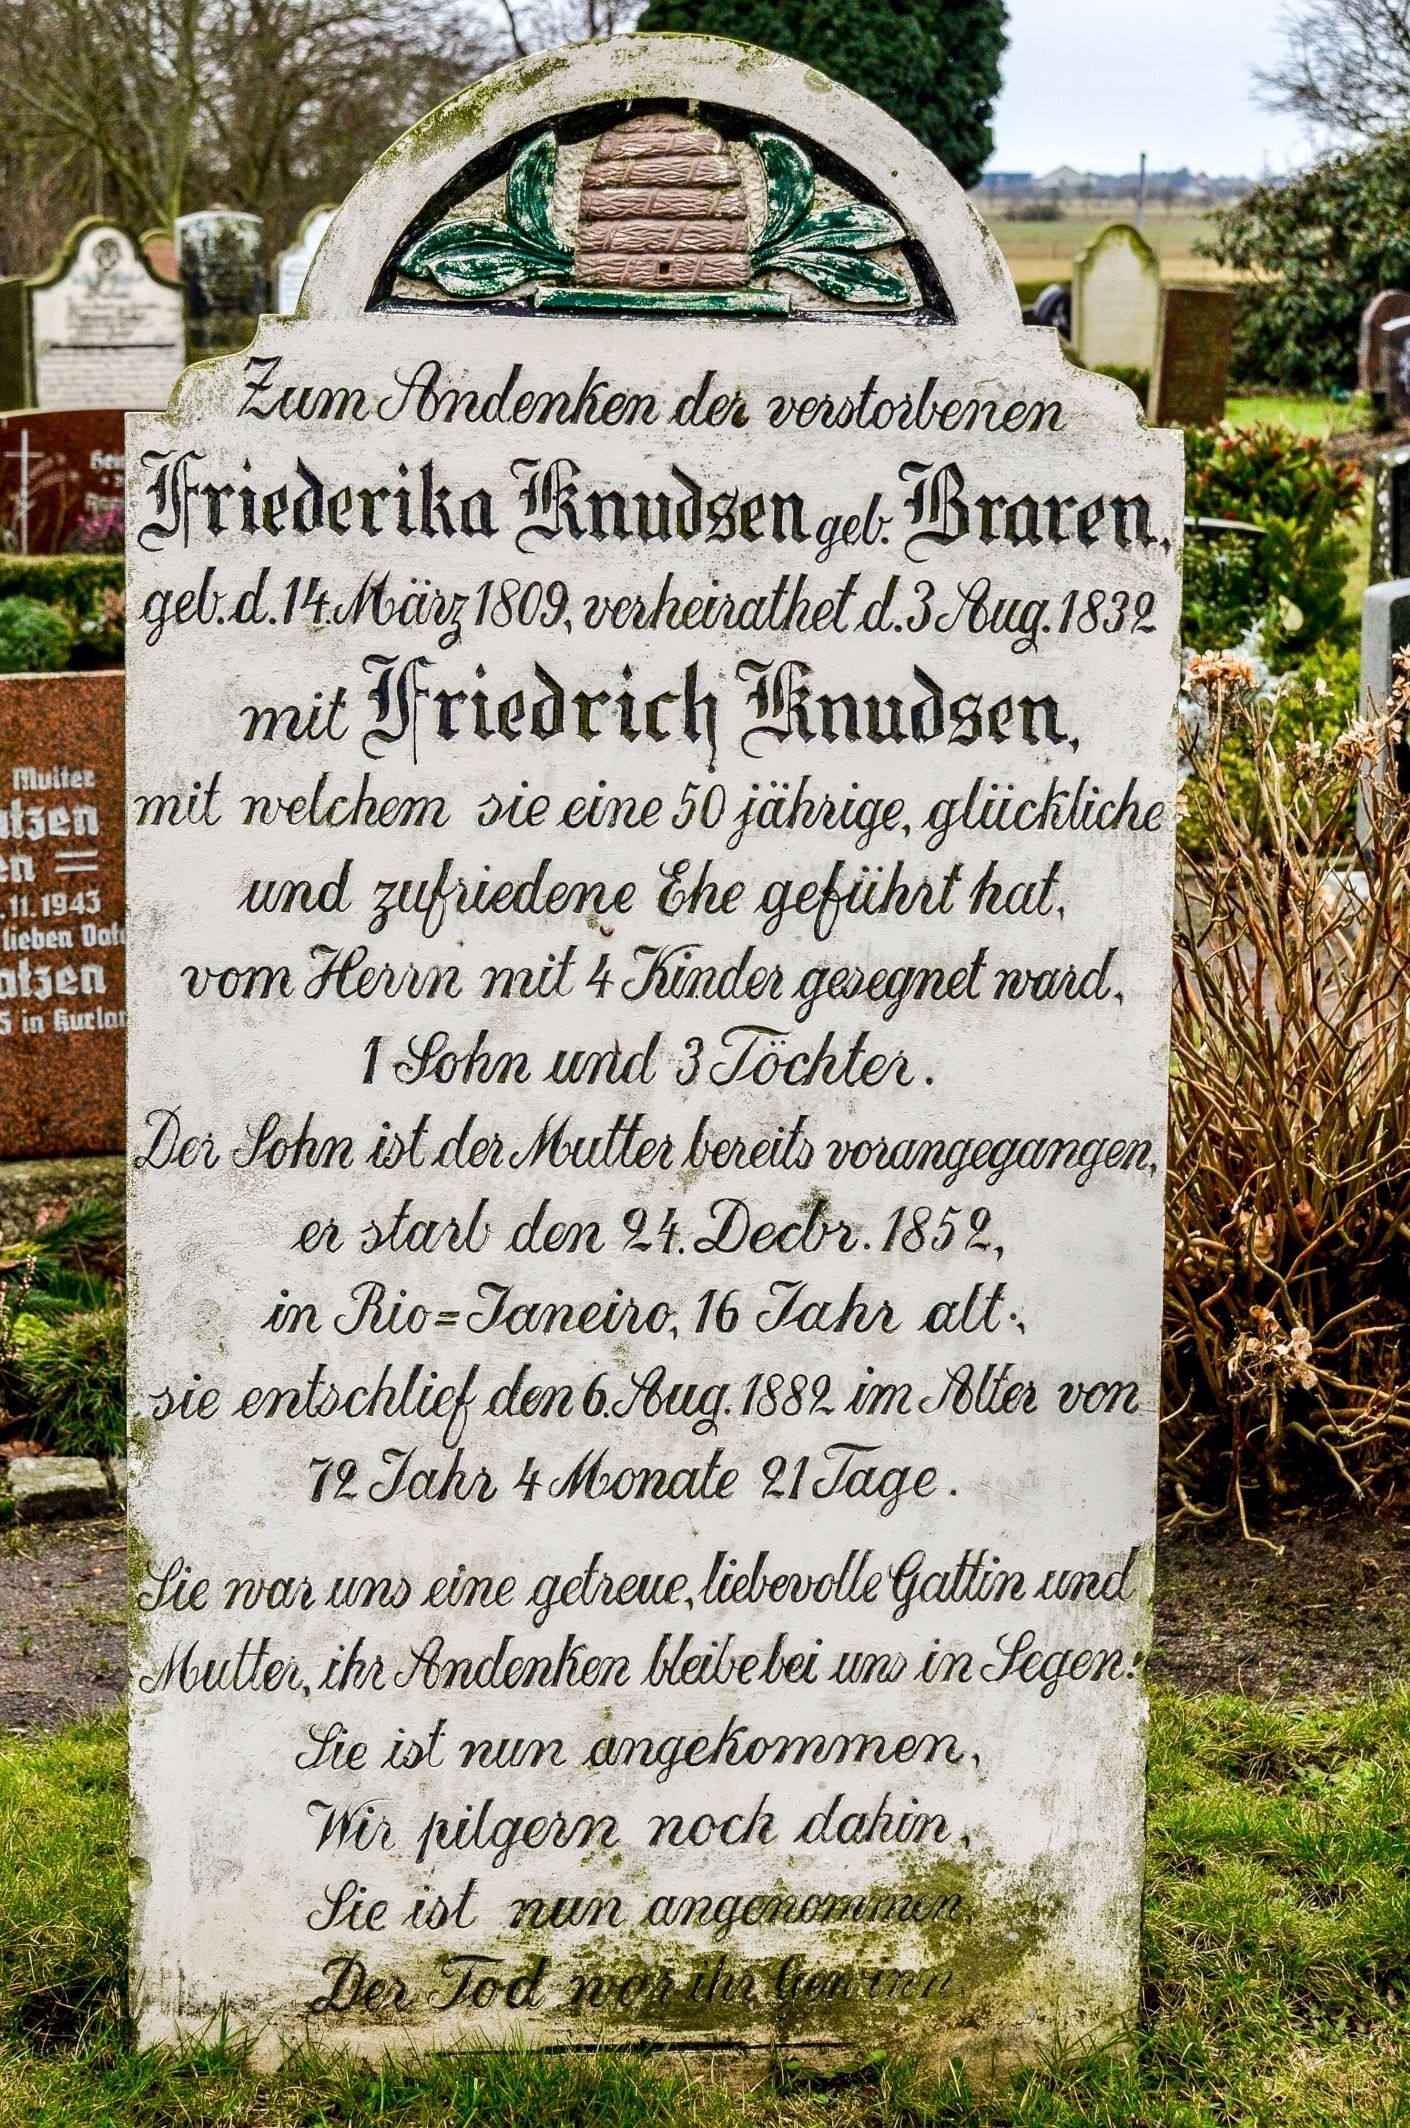 Zum Andenken der verstorbenen
Friederika Knudsen geb. Braren,
geb. d. 14. März 1809, verheirathet d. 3 Aug. 1832
mit Friedrich Knudsen,
mit welchem sie eine 50 jährige, glückliche
und zufriedene Ehe geführt hat,
vom Herrn mit 4 Kinder gesegnet ward,
1 Sohn und 3 Töchter.
Der Sohn ist der Mutter bereits vorangegangen,
er starb den 24. Decbr. 1852,
in Rio=Janeiro, 16 Jahr alt;
sie entschlief den 6. Aug. 1882 im Alter von
72 Jahr 4 Monate 21 Tage.
Sie war uns eine getreue, liebevolle Gattin und
Mutter, ihr Andenken bleibe bei uns in Segen!
Sie ist nun angekommen,
Wir pilgern noch dahin,
Sie ist nun angenommen,
Der Tod war ihr Gewinn
Mutter
.11.1943
lieben
in